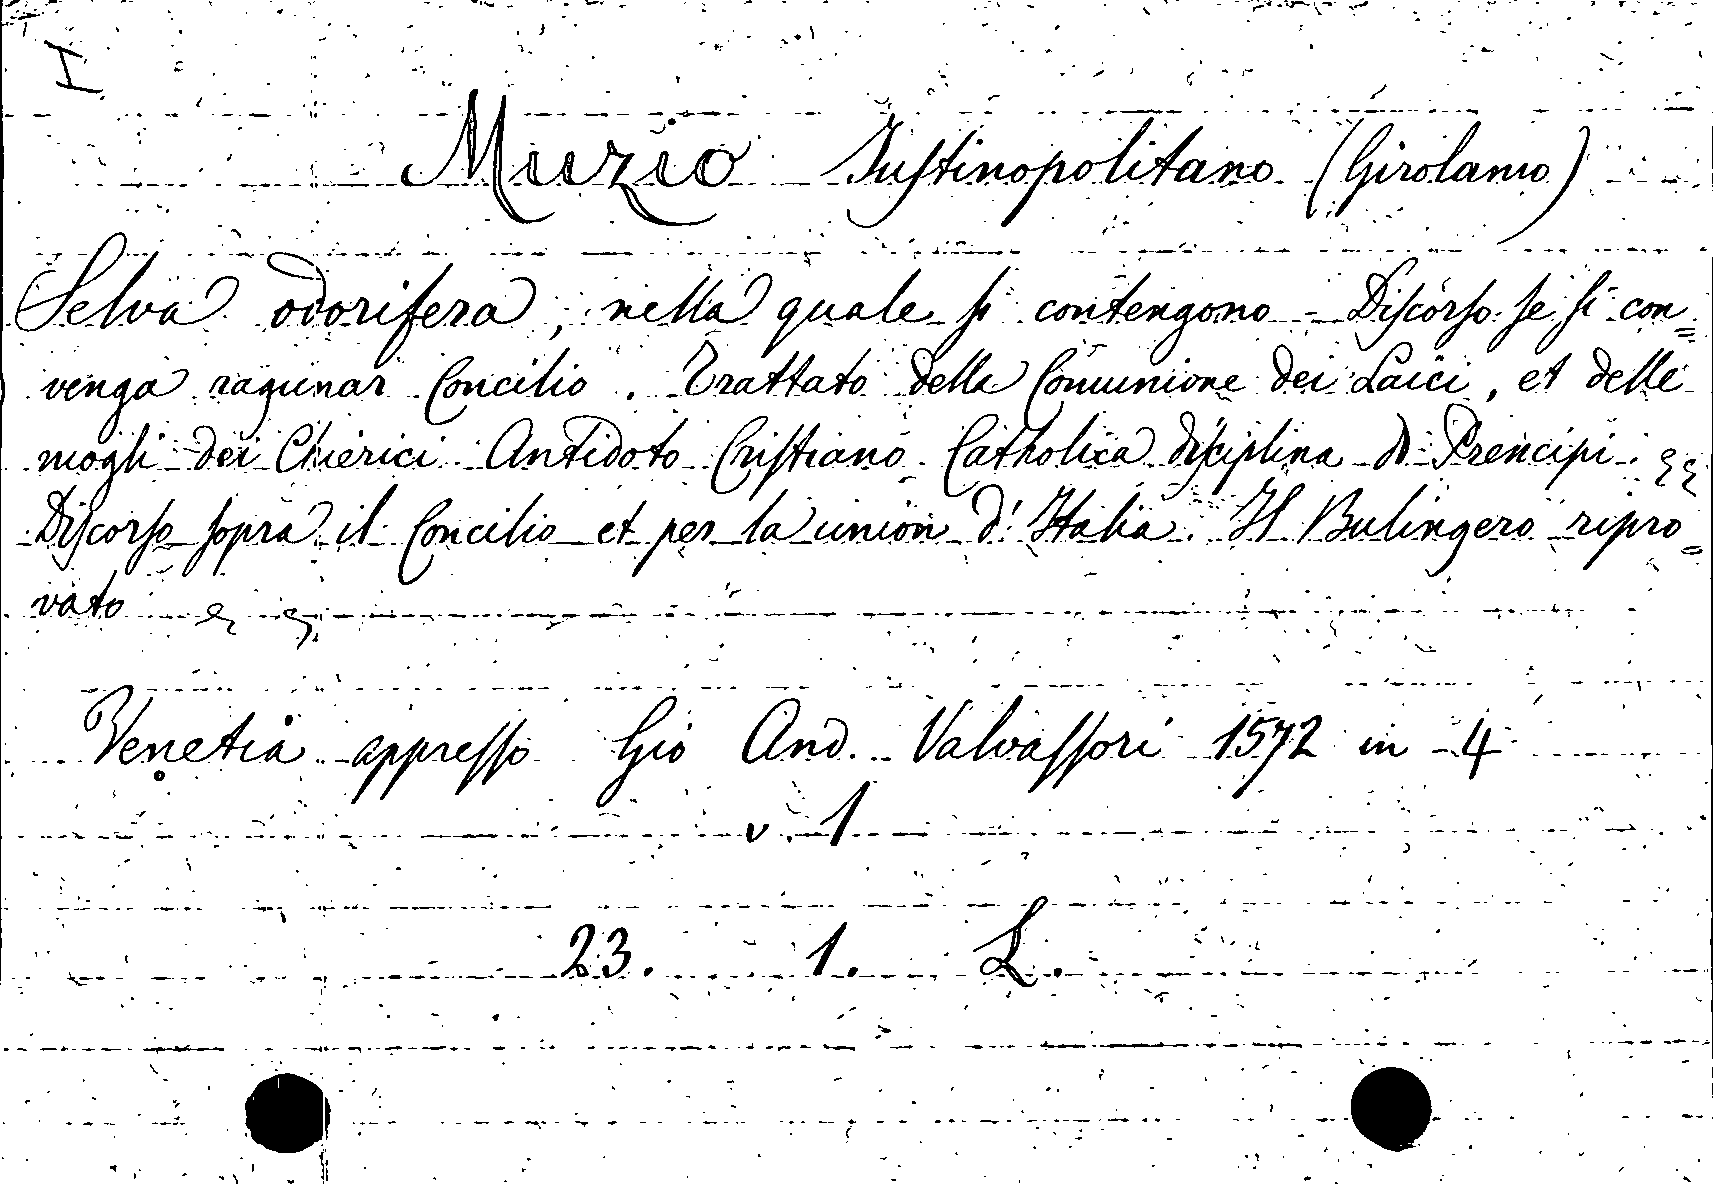 I
Muzio Iustinopolitano (Girolamo)
Selva odorifera, nella quale si contengono - Discorso se si con=
venga ragunar Concilio. Trattato della Comunione dei Laici, et delle
mogli dei Chierici. Antidoto Cristiano. Catholica disciplina di Prencipi.
Discorso sopra il Concilio et per la union d'Italia. Il Bulingero ripro=
vato
Venetia appresso Gio And. Valvassori 1572 in 4
v. 1
23. 1. L.